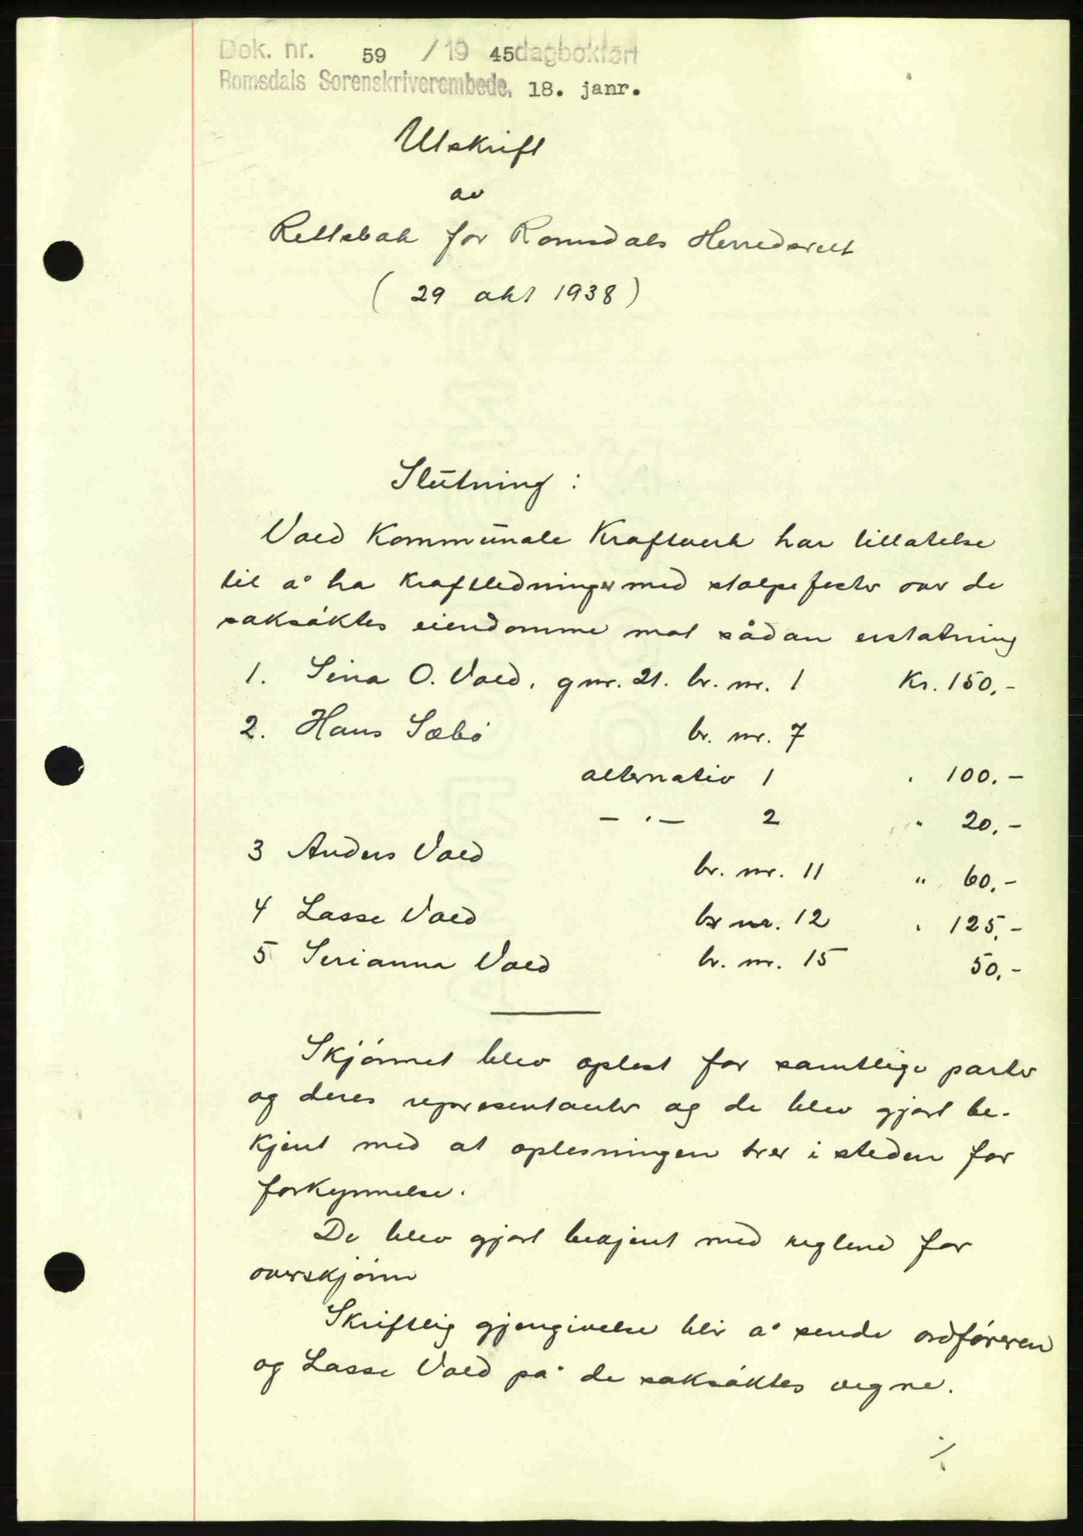 Dok. nr. 59 /19 45 dagbokført
Romsdals Sorenskriverembede, 18. janr.
Utskrift
av
Rettsbok for Romsdals Herredsrett
( 29 okt 1938 )
Slutning :
Voed Kommunale Kraftverk har tillatelse
til å ha kraftledninger med stolpefester over de
saksøktes eiendomme mot sådan erstatning
1. Sina O. Voed. gnr. 21. br. nr. 1 Kr. 150,-
2. Hans Sæbø br. nr. 7
alternativ 1 " 100.-
- " - 2 " 20,-
3 Anders Voed br. nr. 11 " 60,-
4 Lasse Voed br nr. 12 " 125,-
5 Serianna Voed br. nr. 15 50,-
Skjønnet blev oplest for samtlige parter
og deres representanter og de blev gjort be-
kjent med at oplesningen trer i steden for
forkynnelse.
De blev gjort bekjent med reglene for
overskjønn
Skriftlig gjengivelse blir å sende ordføreren
og Lasse Voed på de saksøktes vegne.
./.